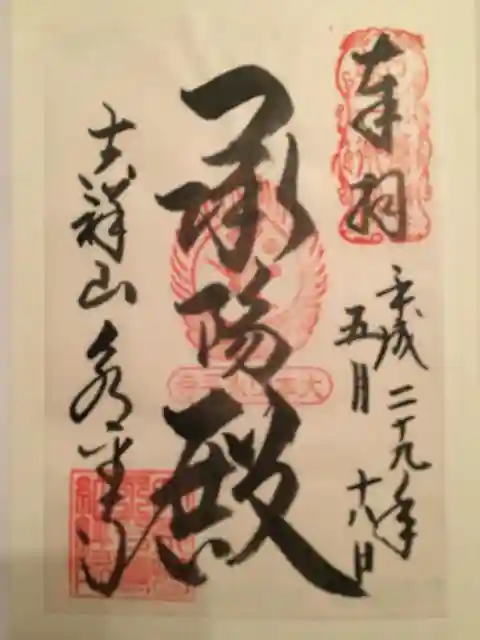 奉拝
平成二十九年
五月十八日
承陽殿
吉祥山永平寺